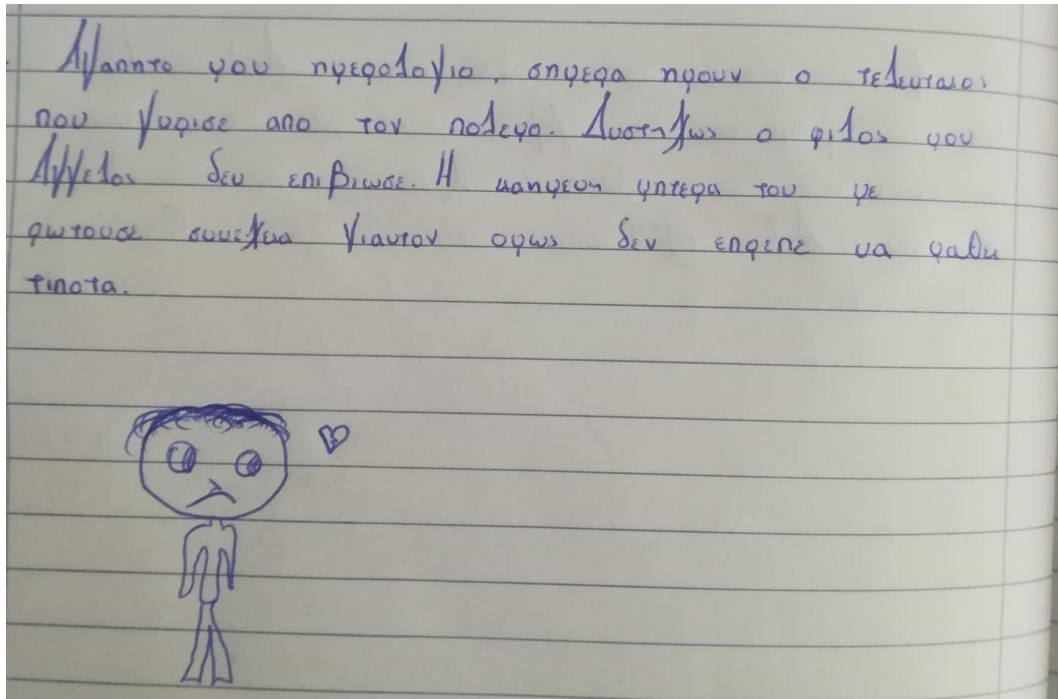 Αγαπητο μου ημερολογιο, σημερα ημουν ο τελευταιος
που γυρισε απο τον πολεμο. Δυστηχως ο φιλος μου
Αγγελος δεν επιβιωσε. Η καημενη μητερα του με
ρωτουσε συνεχεια γιαυτον ομως δεν επρεπε να μαθει
τιποτα.